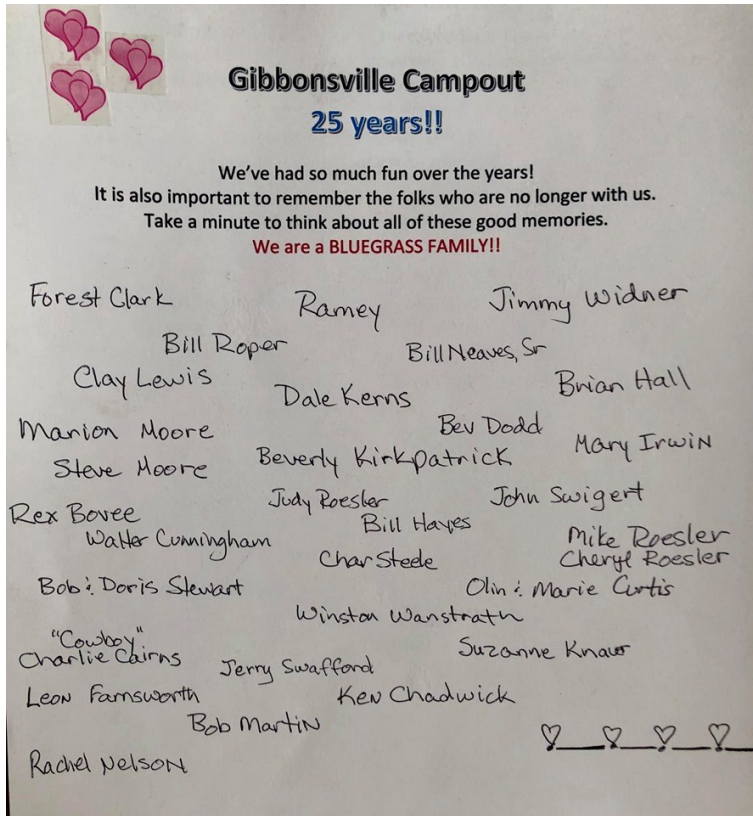 Gibbonsville Campout
25 years!!
We've had so much fun over the years!
It is also important to remember the folks who are no longer with us.
Take a minute to think about all of these good memories.
We are a BLUEGRASS FAMILY!!
Forest Clark
Ramey
Jimmy Widner
Bill Roper
Bill Neaves, Sr
Clay Lewis
Dale Kerns
Brian Hall
Marion Moore
Bev Dodd
Mary Irwin
Steve Moore
Beverly Kirkpatrick
Judy Roesler
John Swigert
Rex Bovee
Bill Hayes
Walter Cunningham
Mike Roesler
Char Steele
Cheryl Roesler
Bob & Doris Stewart
Olin & Marie Curtis
Winston Wanstrath
"Cowboy"
Charlie Cairns
Jerry Swafford
Suzanne Knaur
Leon Farnsworth
Ken Chadwick
Bob Martin
Rachel Nelson